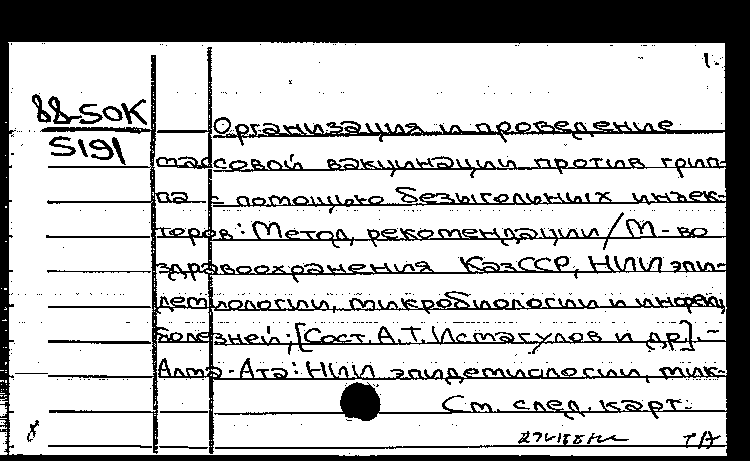 1.
88-50К
5191
Организация и проведение
массовой вакцинации против грип-
па с помощью безыгольных инъек-
торов: Метод, рекомендации / М-во
здравоохранения КазССР, НИИ эпи-
демиологии, микробиологии и инфек,
болезней; [Сост. А.Т. Исмагулов и др]. -
Алма-Ата: НИИ эпидемиологии, мик-
См. след. карт.
8